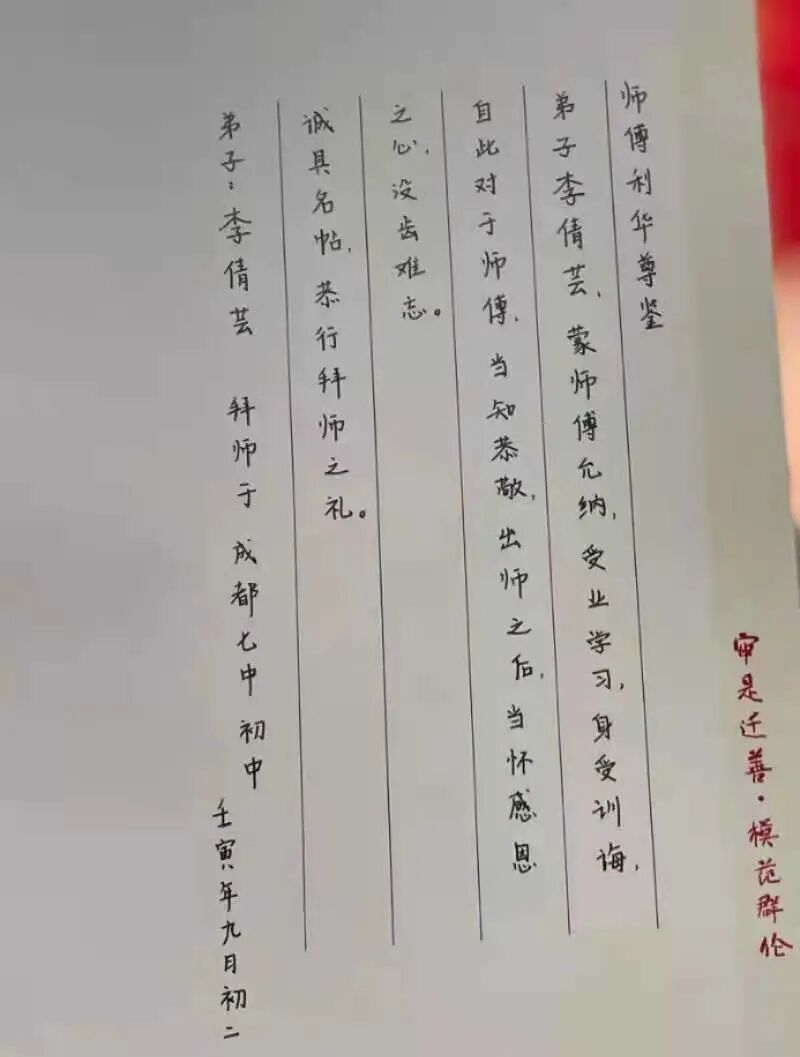 师傅利华尊鉴
弟子李倩芸，蒙师傅允纳，受业学习，身受训诲，
自此对于师傅，当知恭敬，出师之后，当怀感恩
之心，没齿难志。
诚具名帖，恭行拜师之礼。
弟子：李倩芸 拜师于 成都七中初中
壬寅年九月初二
审是迁善·模范群伦